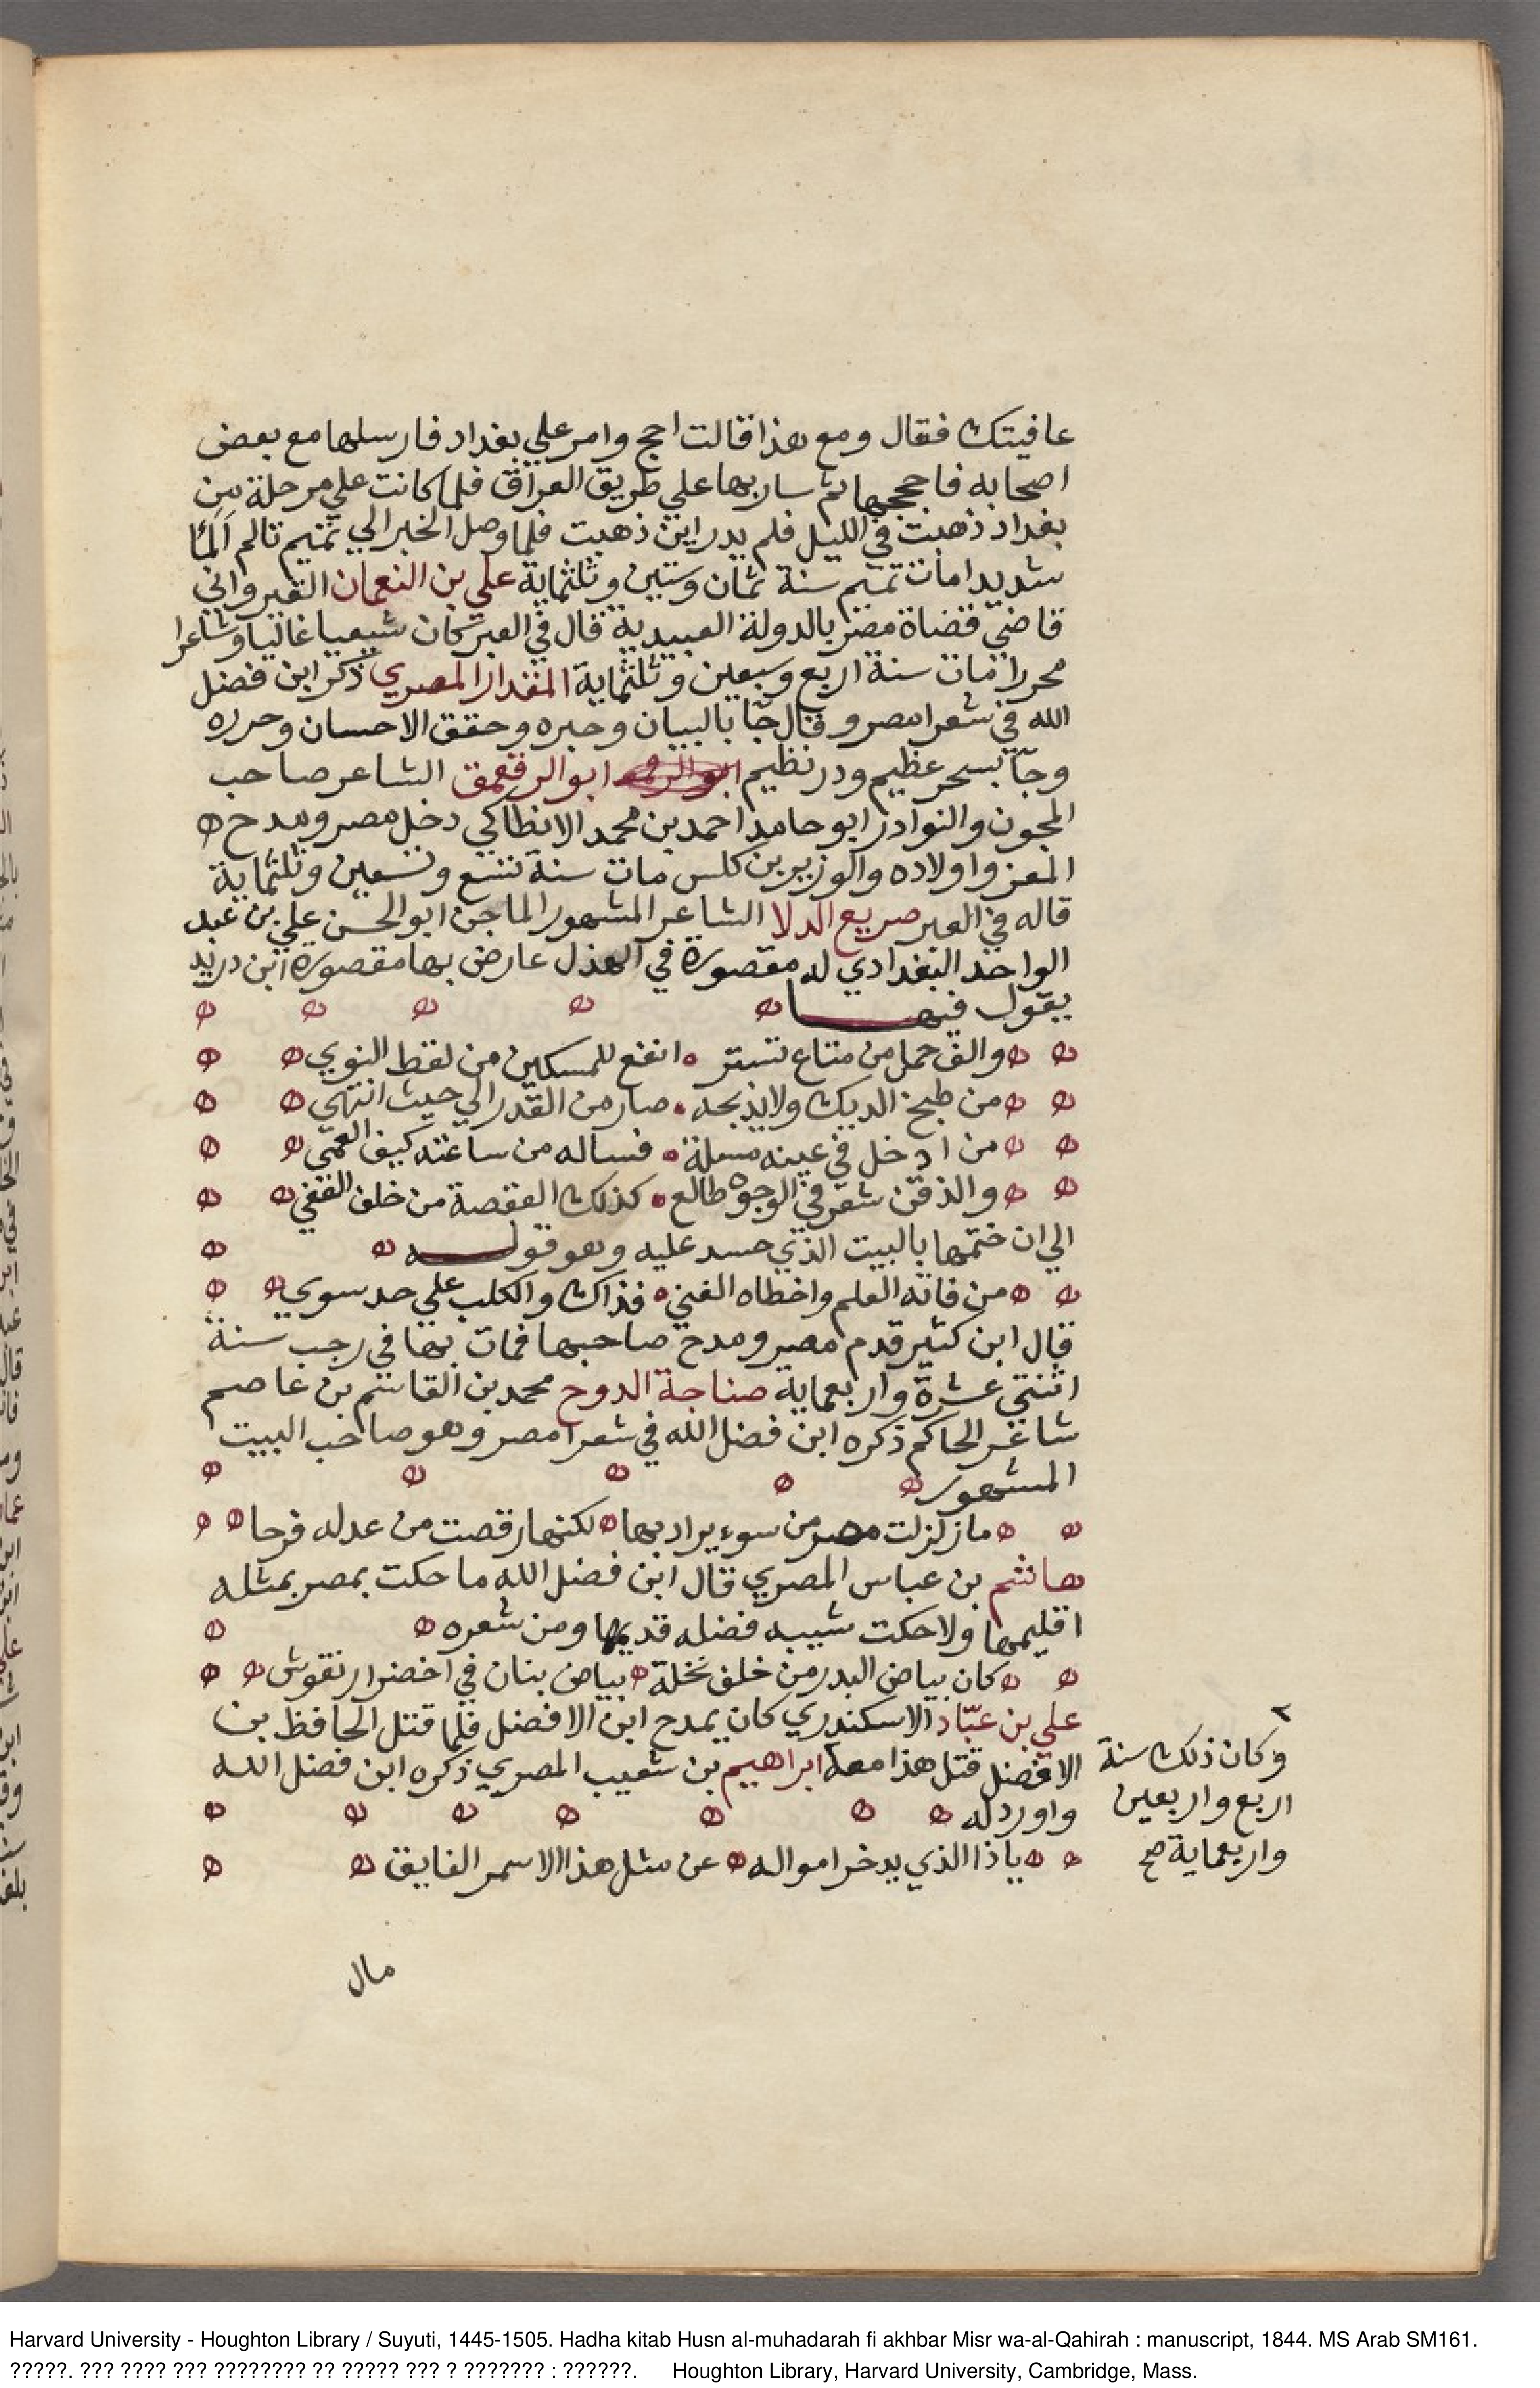 عافيتك فقال ومع هذا قالت احج وامر علي بغداد فارسلها مع بعض
اصحابه فاحججها ثم سار بها علي طريق العراق فلما كانت علي مرحلة من
بغداد ذهبت في الليل فلم يدر اين ذهبت فلما وصل الخبر الي تميم تالم المًا
شديدا مات تميم سنة ثمان وستين وثلثماية علي بن النعمان القيرواني
قاضي قضاة مصر بالدولة العبيدية قال في العبر كان شيعيا غاليا وشاعرا
محررا مات سنة اربع وسبعين وثلثماية المقدار المصري ذكر ابن فضل
الله في شعرا مصر وقال جآ بالبيان وحبره وحقق الاحسان وحرره
وجآ بسحر عظيم ودر نظيم ابو الرقعمق الشاعر صاحب
المجون والنوادر ابو حامد احمد بن محمد الانطاكي دخل مصر ومدح
المعز واولاده والوزير بن كلس مات سنة تسع وتسعين وثلثماية
قاله في العبر صريع الدلا الشاعر المشهور الماجن ابو الحسن علي بن عبد
الواحد البغدادي له مقصورة في الهزل عارض بها مقصورة ابن دريد
يقول فيها
والف حمل من متاع تستر انفع للمسكين من لقط النوي
من طبخ الديك ولا يذبحه صار من القدر الي حيث انتهي
من ادخل في عينه مسلة فساله من ساعته كيف العمي
والذقن شعر في الوجوه طالع كذلك العقصة من خلف القفي
الي ان ختمها بالبيت الذي حسد عليه وهو قوله
من فاته العلم واخطاه الغني فذاك والكلب علي حد سوي
قال ابن كثير قدم مصر ومدح صاحبها فمات بها في رجب سنة
اثنتي عشرة واربعماية صناجة الدوح محمد بن القاسم بن عاصم
شاعر الحاكم ذكره ابن فضل الله في شعرا مصر وهو صاحب البيت
المشهور
ما زلزلت مصر من سوء يراد بها لكنها رقصت من عدله فرحا
هاشم بن عباس المصري قال ابن فضل الله ما حكت بمصر بمثله
اقليمها ولا حكت شبيه فضله قديمها ومن شعره
كان بياض البدر من خلف نخلة بياض بنان في اخضرار نقوش
علي بن عبّاد الاسكندري كان يمدح ابن الافضل فلما قتل الحافظ بن
الافضل قتل هذا معه ابراهيم بن شعيب المصري ذكره ابن فضل الله
واورد له
ياذا الذي يدخر امواله عن مثل هذا الاسمر الفايق
مال
٢
وكان ذلك سنة
اربع واربعين
واربعماية صح
Harvard University - Houghton Library / Suyuti, 1445-1505. Hadha kitab Husn al-muhadarah fi akhbar Misr wa-al-Qahirah : manuscript, 1844. MS Arab SM161.
?????. ??? ???? ??? ???????? ?? ????? ??? ? ??????? : ??????. Houghton Library, Harvard University, Cambridge, Mass.